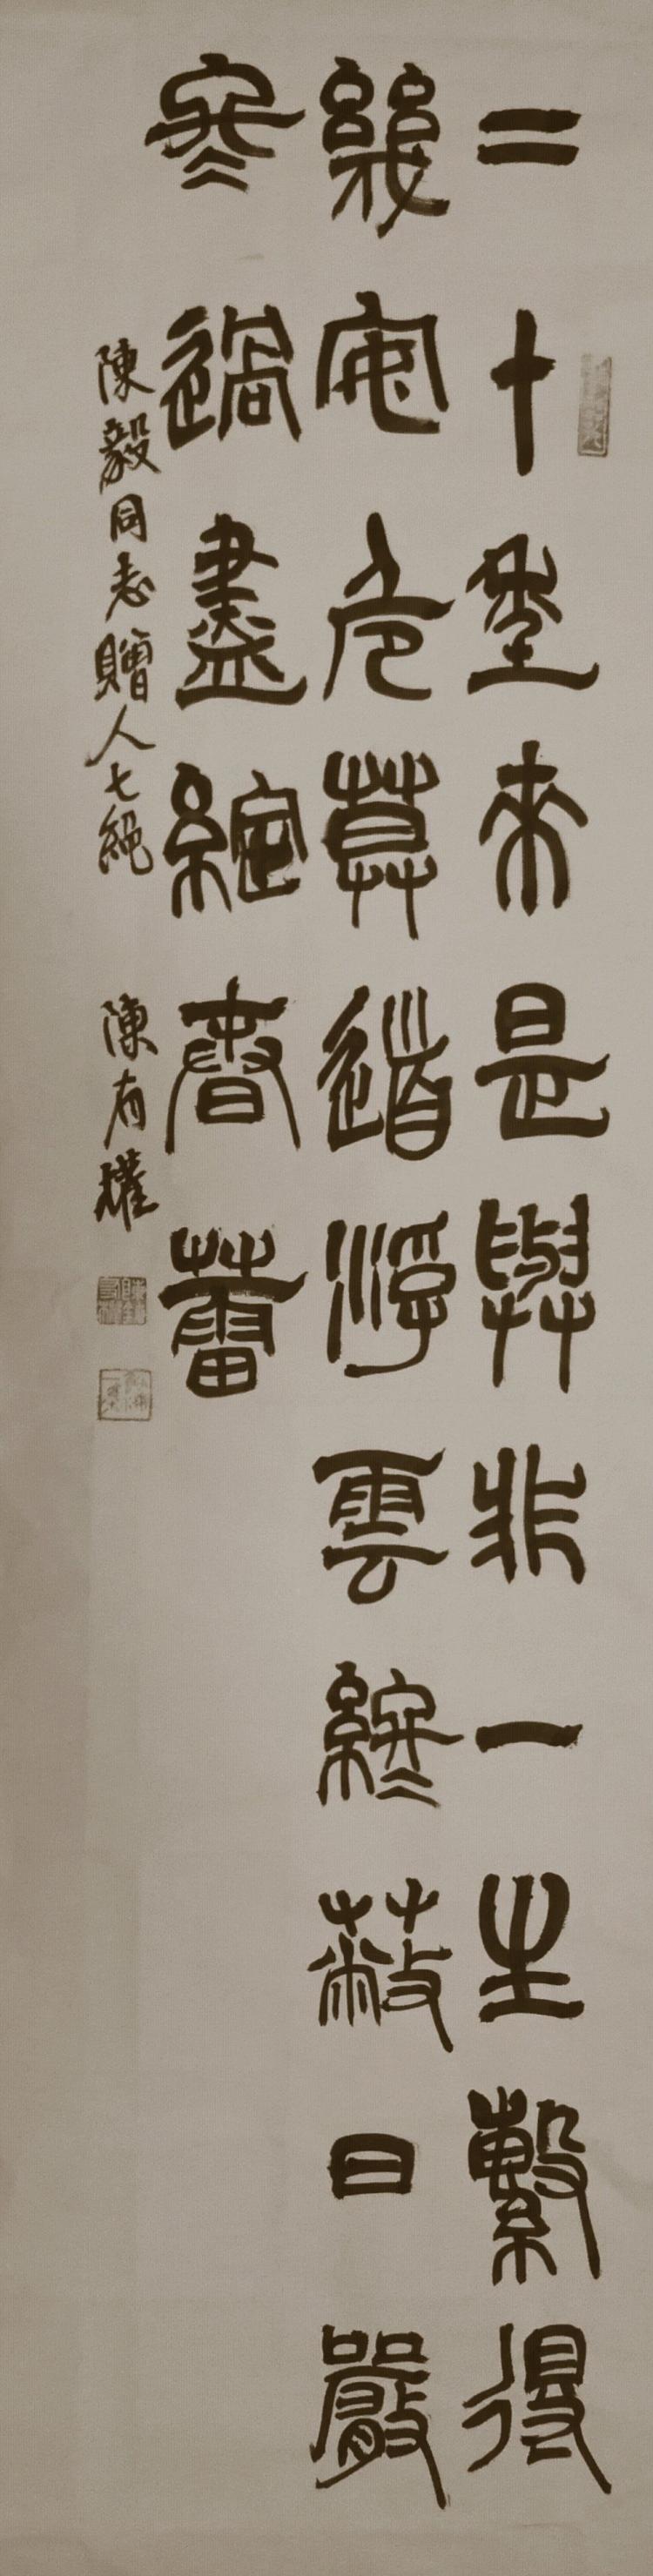 二十年來是與非一生繫得
幾安危莫道浮雲終蔽日嚴
寒過盡綻春蕾
陳毅同志贈人七絕 陳有權